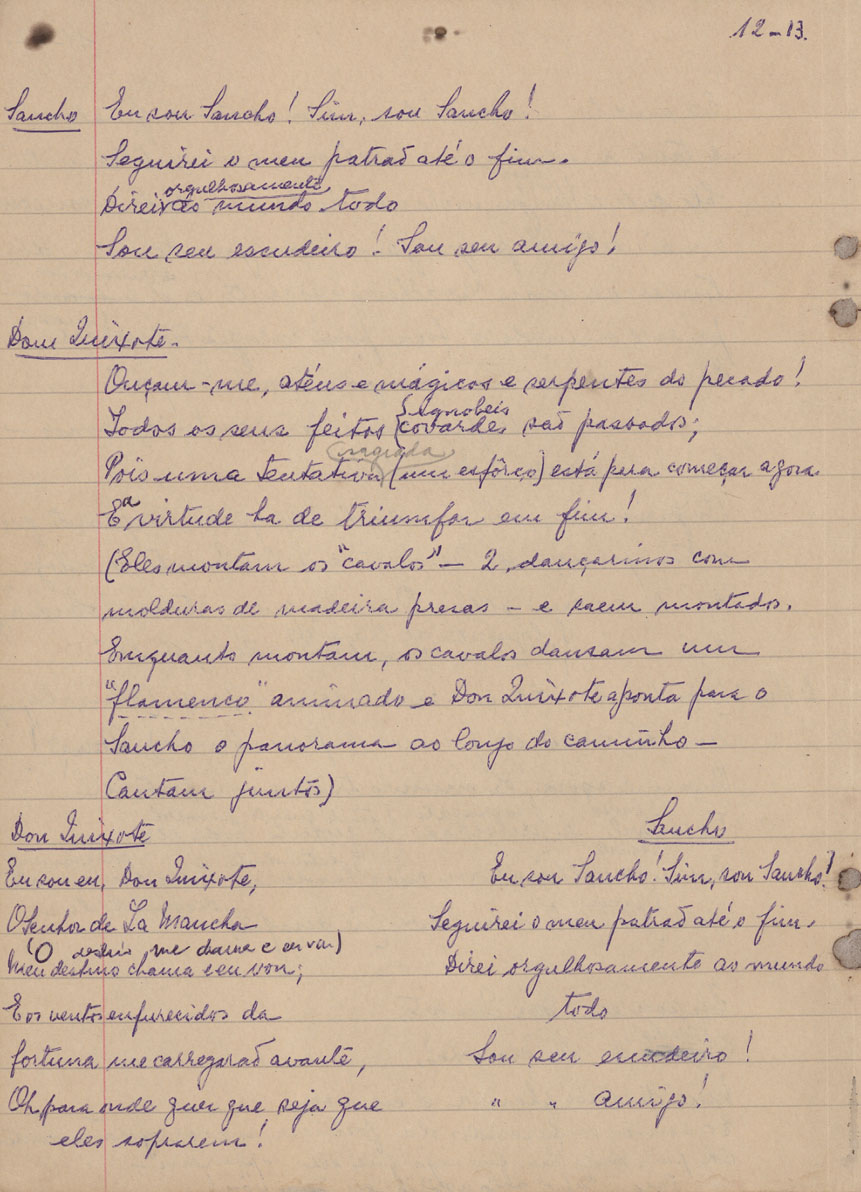 12-13.
Sancho Eu sou Sancho! Sim, sou Sancho!
Seguirei o meu patrão até o fim.
orgulhosamente
Direi ao mundo todo
Sou seu escudeiro! Sou seu amigo!
Dom Quixote.
Ouçam-me, atéus e mágicos e serpentes do pecado!
ignobeis
Todos os seus feitos (covardes são passados;
(sagrada)
Pois uma tentativa (um esfôrço) está para começar agora
E a virtude ha de triumfar em fim!
(Eles montam os "cavalos" – 2 dançarinos com
molduras de madeira presas – e saem montados.
Emquanto montam, os cavalos dansam um
"flamenco" animado e Don Quixote aponta para o
Sancho o panorama ao longo do caminho –
Cantam juntos)
Don Quixote
Eu sou eu, Don Quixote,
O Senhor de La Mancha
(O destino me chama e eu vou)
Meu destino chama e eu vou;
E os ventos enfurecidos da
fortuna me carregarão avante,
Oh, para onde quer que seja que
eles soprarem!
Sancho
Eu sou Sancho! Sim, sou Sancho!
Seguirei o meu patrão até o fim.
Direi orgulhosamente ao mundo
todo
Sou seu escudeiro!
" " amigo!